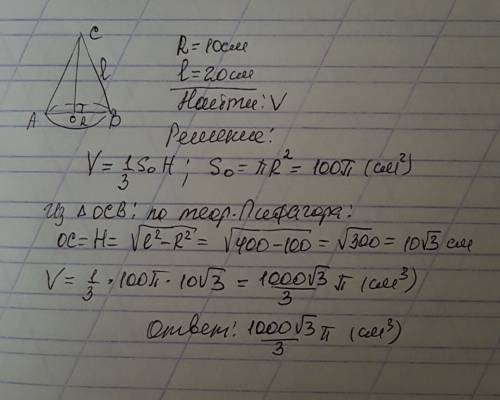 C
l
A O R B
R = 10см
l = 20см
Найти: V
Решение:
V = 1/3 S₀H ; S₀ = πR² = 100π (см²)
Из △OCB: по теор. Пифагора:
OC = H = √(l² - R²) = √(400 - 100) = √300 = 10√3 см
V = 1/3 · 100π · 10√3 = 1000√3/3 π (см³)
Ответ: 1000√3/3 π (см³)